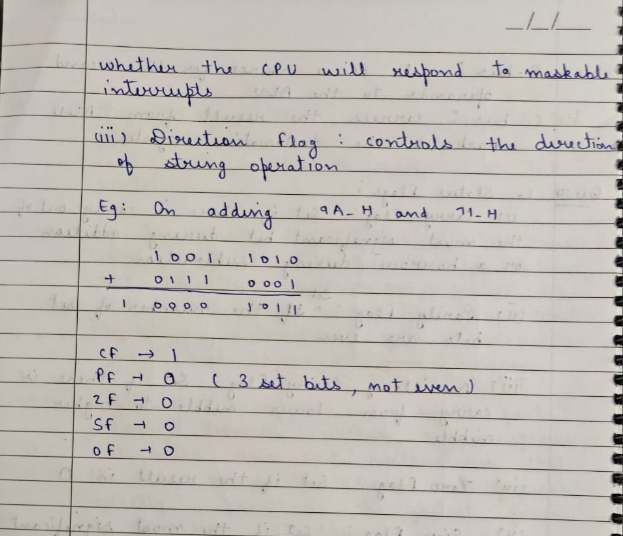 whether the CPU will respond to maskable
interrupts
(iii) Direction flag : controls the direction
of string operation
Eg: On adding 9A_H and 71_H
1001 1010
+ 0111 0001
1 0000 1011
CF → 1
PF → 0 ( 3 set bits, not even)
ZF → 0
SF → 0
OF → 0